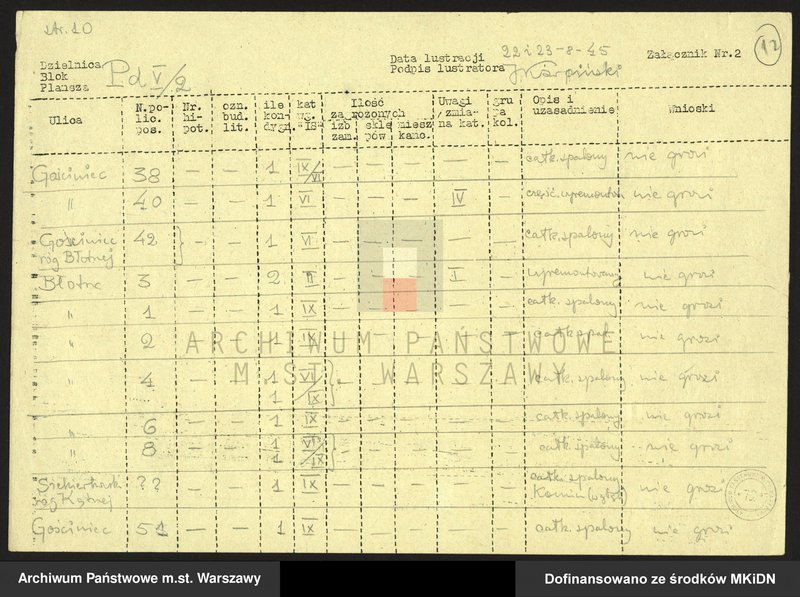 str. 10
12
Dzielnica
Blok
Plansza
Pd V/2
Data lustracji 22 i 23-8-45
Podpis lustratora J. Karpiński
Załącznik Nr.2
Ulica | N.po-lic. pos. | Nr. hi-pot. | ozn. bud. lit. | ile kon-dygn. | kat wg. "IS" | Ilość zagrożonych izb zam. | sklepów | miesz kanc. | Uwagi /zmia-na kat. | gru pa kol. | Opis i uzasadnienie | Wnioski
Gościniec 38 — — 1 IX/VI — — — — — całk. spalony nie grozi
" 40 — — 1 VI — — — IV — część. wyremontow. nie grozi
Gościniec róg Błotnej 42 } — — 1 VI — — — — — całk. spalony nie grozi
Błotna 3 — — 2 II — — — I — wyremontowany nie grozi
" 1 — — 1 IX — — — — — całk. spalony nie grozi
" 2 — — 1 IX — — — — — całk. spal. nie grozi
" 4 — — 1 VI — — — — — całk. spalony nie grozi
1 IX
" 6 — — 1 IX — — — — — całk. spalony nie grozi
" 8 — — 1 VI — — — — — całk. spalony nie grozi
1 IX
róg Kątnej ?? — — 1 IX — — — — — całk. spalony nie grozi
Komin
Gościniec 51 — — 1 IX — — — — — całk. spalony nie grozi
ARCHIWUM PAŃSTWOWE
M.ST. WARSZAWY
Archiwum Państwowe m.st. Warszawy
Dofinansowano ze środków MKiDN